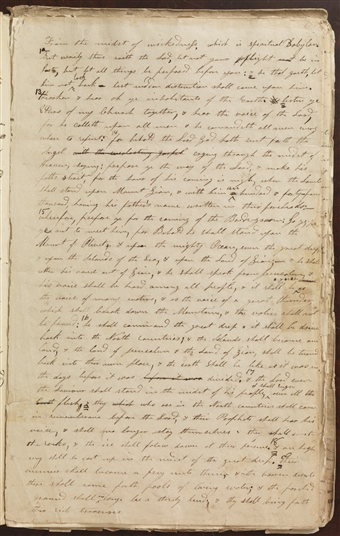 from the midst of wickedness, which is spiritual Babylon
But verily thus saith the Lord, let not your flight be in
haste, but let all things be prepared before you; & he that goeth, let
him not look back lest sudden destruction shall come upon him
Hearken & hear oh ye inhabitants of the Earth. Listen ye
Elders of my Church together, & hear the voice of the Lord,
for he calleth upon all men & he commandeth all men every
where to repent; for behold the Lord God hath sent forth the
Angel crying through the midst of
Heaven, saying; prepare ye the way of the Lord, & make his
paths strait for the hour of his coming is nigh, when the Lamb
shall stand upon Mount Zion, & with him an hundred & forty four
thousand having his father's name written in their foreheads;
wherefore, prepare ye for the coming of the Bridegroom; go ye, go
ye out to meet him, for Behold he shall stand upon the
Mount of Olivet, & upon the mighty Ocean, even the great deep
& upon the Islands of the Sea, & upon the Land of Zion; & he shall
utter his voice out of Zion, & he shall speak from Jerusalem, &
his voice shall be heard among all people, & it shall be as
the voice of many waters, & as the voice of a great thunder,
which shall break down the Mountains, & the vallies shall not
be found; he shall command the great deep & it shall be driven
back into the North countries, & the Islands shall become one
land, & the land of Jerusalem & the land of Zion, shall be turned
back into their own place, & the earth shall be like as it was in
the days before it was divided; & the Lord even
the Saviour shall stand in the midst of his people, & shall reign
over all flesh; & they who are in the North countries shall come
in remembrance before the Lord, & their Prophets shall hear his
voice, & shall no longer stay themselves & they shall smite
the rocks, & the ice shall flow down at their presence, & an high
way shall be cast up in the midst of the great deep.
enemies shall become a prey unto them, & in the barren deserts
there shall come forth pools of living water; & the parched
ground shall no longer be a thirsty land; & they shall bring forth
their rich treasures